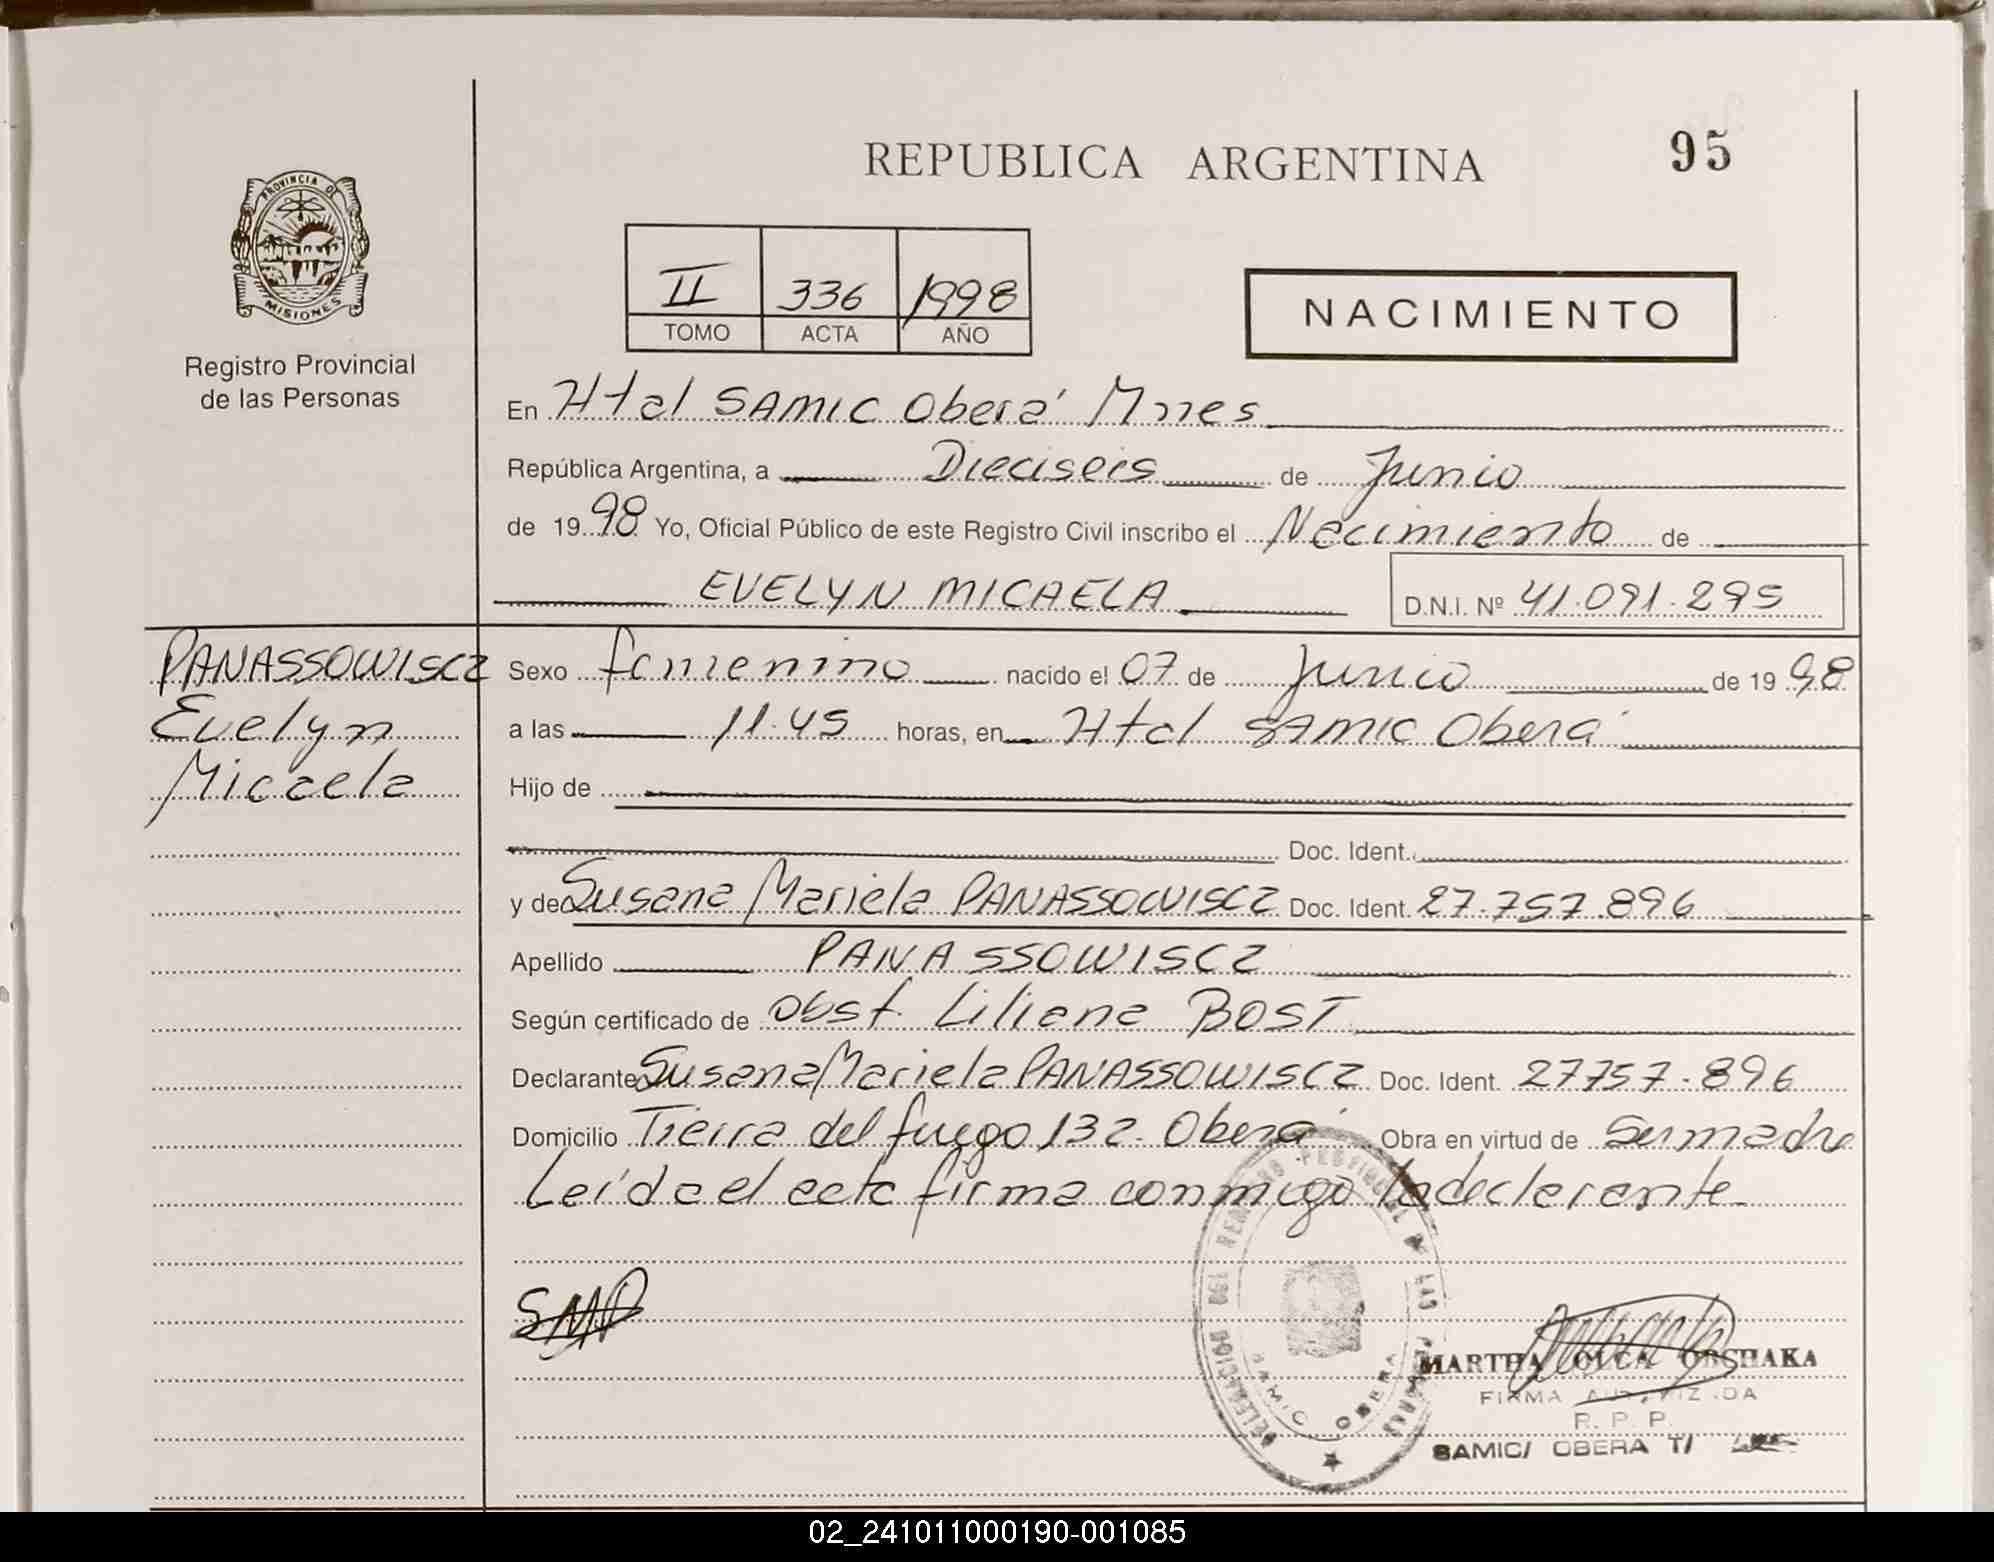 REPUBLICA ARGENTINA
95
PROVINCIA DE
MISIONES
Registro Provincial
de las Personas
II 336 1998
TOMO ACTA AÑO
NACIMIENTO
En Htal SAMIC Oberá Mnes
República Argentina, a Dieciseis de Junio
de 1998 Yo, Oficial Público de este Registro Civil inscribo el Nacimiento de
EVELYN MICAELA D.N.I. Nº 41.091.295
PANASSOWISCZ
Evelyn
Micaela
Sexo femenino nacido el 07 de Junio de 1998
a las 11.45 horas, en Htal SAMIC Oberá
Hijo de
Doc. Ident.
y de Susana Mariela PANASSOWISCZ Doc. Ident. 27.757.896
Apellido PANASSOWISCZ
Según certificado de Obst. Liliana BOST
Declarante Susana Mariela PANASSOWISCZ Doc. Ident. 27757.896
Domicilio Tierra del fuego 132. Oberá Obra en virtud de Ser madre
Leída el acta firma conmigo la declarante
SMP
DELEGACION DEL REGISTRO PROVINCIAL DE LAS PERSONAS
SAMIC OBERA
MARTHA OLGA OBSHAKA
FIRMA AUTORIZADA
R. P. P.
SAMIC/ OBERA T/
02_241011000190-001085